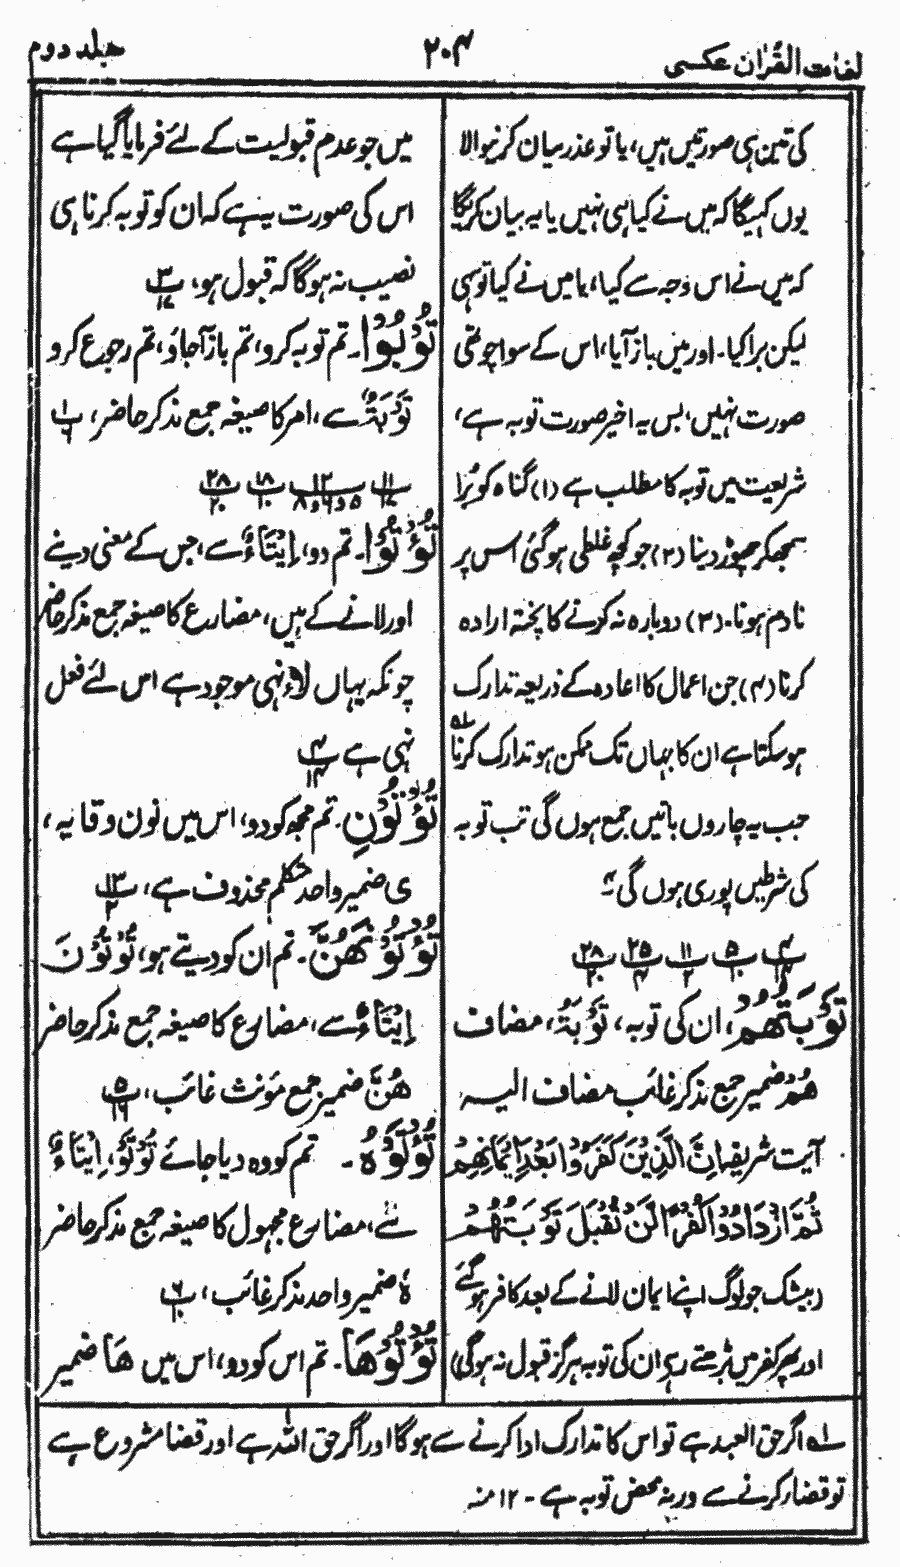 لغات القُرْان عکسی
۲۰۴
جلد دوم
کی تین ہی صورتیں ہیں، یا تو عذر میان کرنیوالا
یوں کہیگا کہ میں نے کیا ہی نہیں یا یہ بیان کریگا
کہ میں نے اس وجہ سے کیا، یا میں نے کیا تو سہی
لیکن برا کیا۔ اور میں باز آیا، اس کے سوا چوتھی
صورت نہیں، بس یہ اخیر صورت توبہ ہے،
شریعت میں توبہ کا مطلب ہے (۱) گناہ کو بُرا
سمجھکر چھوڑ دینا (۲) جو کچھ غلطی ہوگئی اس پر
نادم ہونا۔ (۳) دوبارہ نہ کرنے کا پختہ ارادہ
کرنا (۴) جن اعمال کا اعادہ کے ذریعہ تدارک
ہوسکتا ہے ان کا جہاں تک ممکن ہو تدارک کرنا ۱؎
جب یہ چاروں باتیں جمع ہوں گی تب توبہ
کی شرطیں پوری ہوں گی۔
۴ ۵ ۱۱ ۲۵ ۲۸
۱۴ ۱۰ ۲ ۴ ۲۰
تَوْبَتُهُمْ، ان کی توبہ، تَوْبَةٌ، مضاف
هُمْ ضمیر جمع مذکر غائب مضاف الیہ
آیت شریفہ اِنَّ الَّذِیْنَ کَفَرُوْا بَعْدَ اِیْمَانِهِمْ
ثُمَّ ازْدَادُوْا کُفْرًا لَّنْ تُقْبَلَ تَوْبَتُهُمْ
(بیشک جو لوگ اپنے ایمان لانے کے بعد کافر ہوگئے
اور پھر کفر میں بڑھتے رہے ان کی توبہ ہرگز قبول نہ ہوگی)
میں جو عدم قبولیت کے لئے فرمایا گیا ہے
اس کی صورت یہ ہے کہ ان کو توبہ کرنا ہی
نصیب نہ ہوگا کہ قبول ہو، ۳
۱۷
تُوْبُوْا۔ تم توبہ کرو، تم باز آجاؤ، تم رجوع کرو
تَوْبَةٌ سے، امر کا صیغہ جمع مذکر حاضر، ۱
۶
۱۱ ۱۲ ۱۸ ۲۸
۱۷ ۵ و ۶ و ۸ ۱۰ ۲۰
تُؤْتُوْا۔ تم دو، اِیْتَاءٌ سے، جس کے معنی دینے
اور لانے کے ہیں، مضارع کا صیغہ جمع مذکر حاضر
چونکہ یہاں لاءِ نہی موجود ہے اس لئے فعل
نہی ہے ۴
۱۴
تُؤْتُوْنِ۔ تم مجھ کو دو، اس میں نون وقایہ،
ی ضمیر واحد متکلم محذوف ہے، ۱۳
۲
تُؤْتُوْنَهُنَّ۔ تم ان کو دیتے ہو، تُؤْتُوْنَ
اِیْتَاءٌ سے، مضارع کا صیغہ جمع مذکر حاضر
هُنَّ ضمیر جمع مؤنث غائب، ۵
۱۶
تُؤْتَوْهُ۔ تم کو وہ دیا جائے تُؤْتَوْ، اِیْتَاءٌ
سے، مضارع مجہول کا صیغہ جمع مذکر حاضر
هُ ضمیر واحد مذکر غائب، ۶
۱۰
تُؤْتُوْهَا۔ تم اس کو دو، اس میں هَا ضمیر
۱؎ اگر حق العبد ہے تو اس کا تدارک ادا کرنے سے ہوگا اور اگر حق اللہ ہے اور قضا مشروع ہے
تو قضاء کرنے سے ورنہ محض توبہ ہے۔ ۱۲ منہ